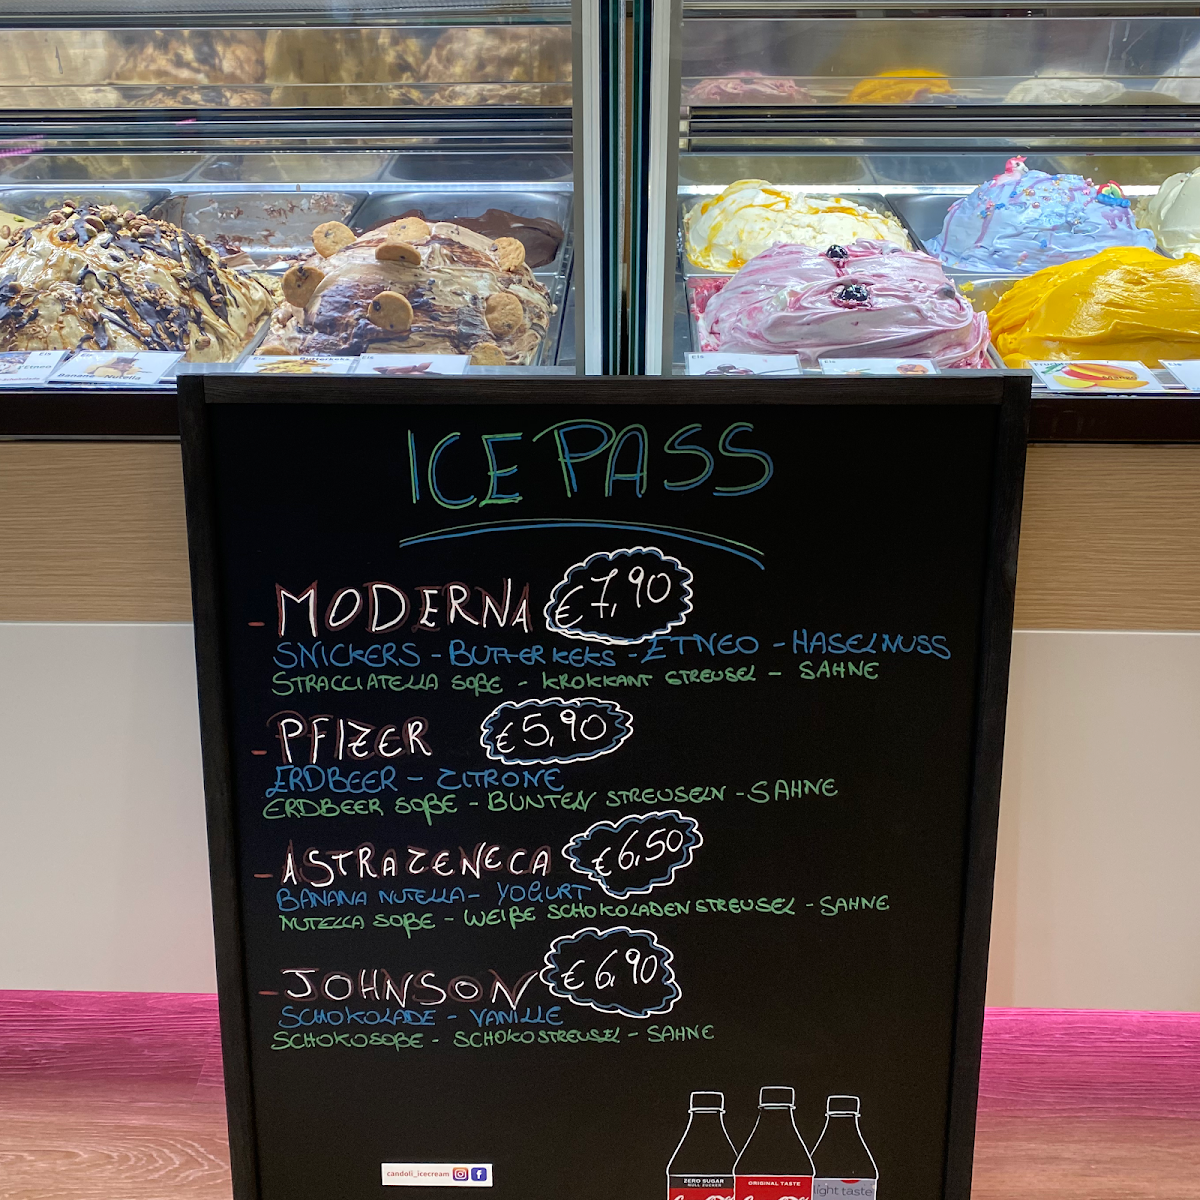 Eis
Etneo
Banana-Nutella
Eis
Butterkeks
Eis
Eis
Eis
Mango
Eis
ICE PASS
- MODERNA €7,90
SNICKERS - BUTTERKEKS - ETNEO - HASELNUSS
STRACCIATELLA SOßE - KROKKANT STREUSEL - SAHNE
- PFIZER €5,90
ERDBEER - ZITRONE
ERDBEER SOßE - BUNTEN STREUSELN - SAHNE
- ASTRAZENECA €6,50
BANANA NUTELLA - YOGURT
NUTELLA SOßE - WEIßE SCHOKOLADEN STREUSEL - SAHNE
- JOHNSON €6,90
SCHOKOLADE - VANILLE
SCHOKOSOßE - SCHOKOSTREUSEL - SAHNE
candoli_icecream
ZERO SUGAR
NULL ZUCKER
ORIGINAL TASTE
light taste